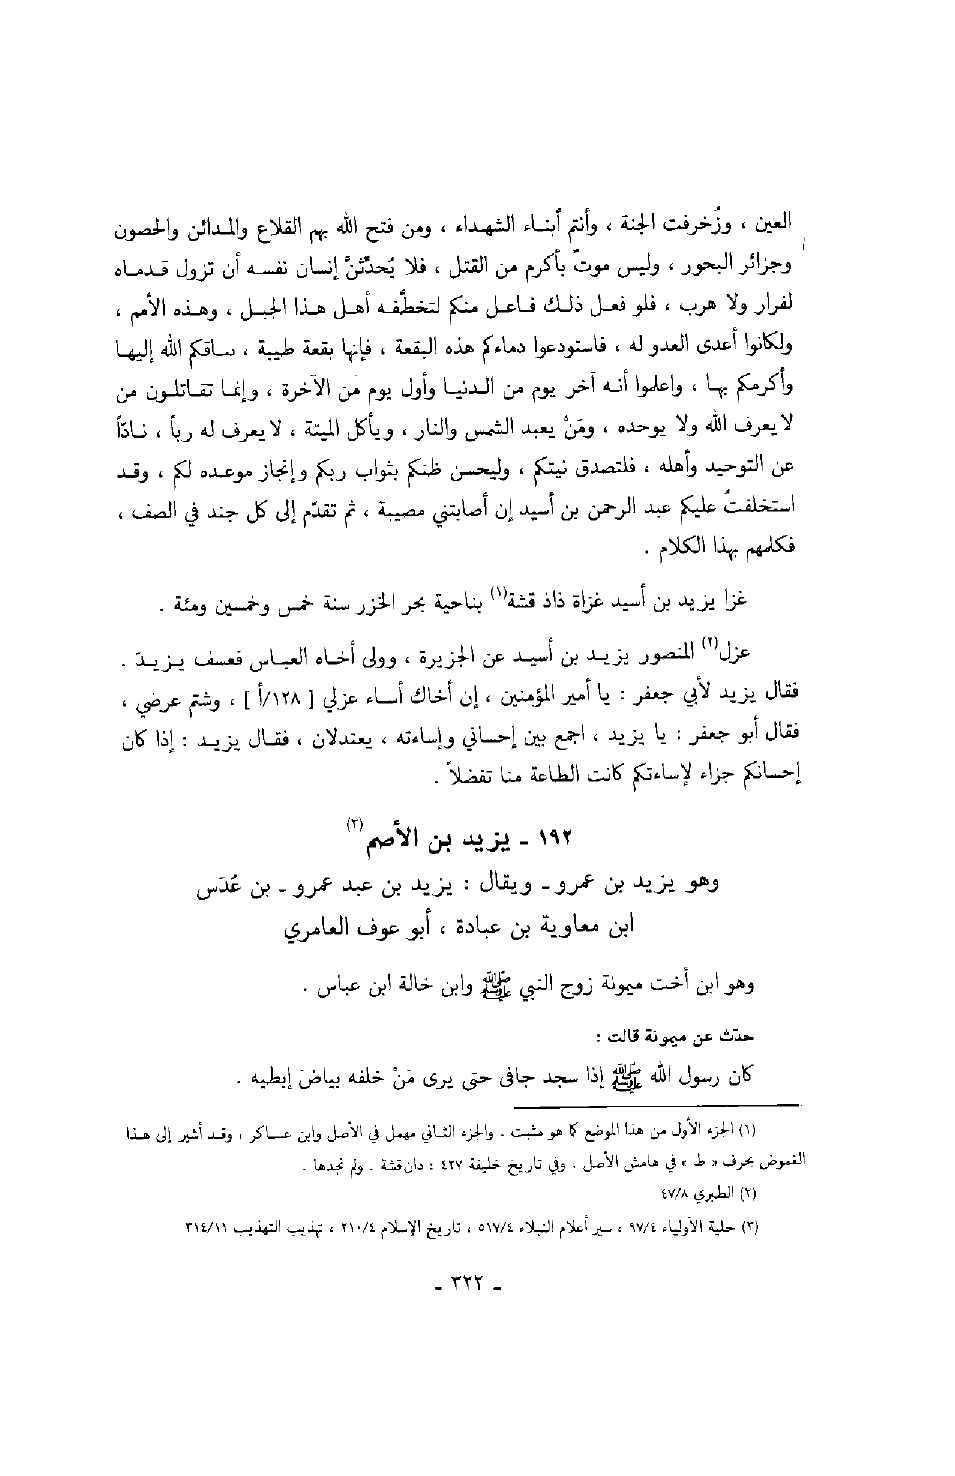 العين ، وزُخرفت الجنة ، وأنتم أبناء الشهداء ، ومن فتح الله بهم القلاع والمدائن والحصون
وجزائر البحور ، وليس موتٌ بأكرم من القتل ، فلا يُحدّثنَّ إنسان نفسه أن تزول قدماه
لفرار ولا هرب ، فلو فعل ذلك فاعل منكم لتخطَّفه أهل هذا الجبل ، وهذه الأمم ،
ولكانوا أعدى العدو له ، فاستودعوا دماءكم هذه البقعة ، فإنها بقعة طيبة ، ساقكم الله إليها
وأكرمكم بها ، واعلموا أنه آخر يوم من الدنيا وأول يوم من الآخرة ، وإنما تقاتلون من
لا يعرف الله ولا يوحده ، ومَنْ يعبد الشمس والنار ، ويأكل الميتة ، لا يعرف له رباً ، نادّاً
عن التوحيد وأهله ، فلتصدق نيتكم ، وليحسن ظنكم بثواب ربكم وإنجاز موعده لكم ، وقد
استخلفتُ عليكم عبد الرحمن بن أسيد إن أصابتني مصيبة ، ثم تقدّم إلى كل جند في الصف ،
فكلمهم بهذا الكلام .
غزا يزيد بن أسيد غزاة ذاذ قشة(١) بناحية بحر الخزر سنة خمس وخمسين ومئة .
عزل(٢) المنصور يزيد بن أسيد عن الجزيرة ، وولى أخاه العباس فعسف يزيدَ .
فقال يزيد لأبي جعفر : يا أمير المؤمنين ، إن أخاك أساء عزلي [ ١٢٨/أ ] ، وشتم عرضي ،
فقال أبو جعفر : يا يزيد ، اجمع بين إحساني وإساءته ، يعتدلان ، فقال يزيد : إذا كان
إحسانكم جزاء لإساءتكم كانت الطاعة منا تفضلاً .
١٩٢ ـ يزيد بن الأصم(٣)
وهو يزيد بن عمرو ـ ويقال : يزيد بن عبد عمرو ـ بن عُدَس
ابن معاوية بن عبادة ، أبو عوف العامري
وهو ابن أخت ميمونة زوج النبي ﷺ وابن خالة ابن عباس .
حدّث عن ميمونة قالت :
كان رسول الله ﷺ إذا سجد جافى حتى يرى مَنْ خلفه بياضَ إبطيه .
(١) الجزء الأول من هذا الموضع كما هو مثبت . والجزء الثاني مهمل في الأصل وابن عساكر ، وقد أشير إلى هذا
الغموض بحرف « ط » في هامش الأصل . وفي تاريخ خليفة ٤٢٧ : دان قشة . ولم نجدها .
(٢) الطبري ٤٧/٨
(٣) حلية الأولياء ٩٧/٤ ، سير أعلام النبلاء ٥١٧/٤ ، تاريخ الإسلام ٢١٠/٤ ، تهذيب التهذيب ٣١٤/١١
ـ ٣٢٢ ـ